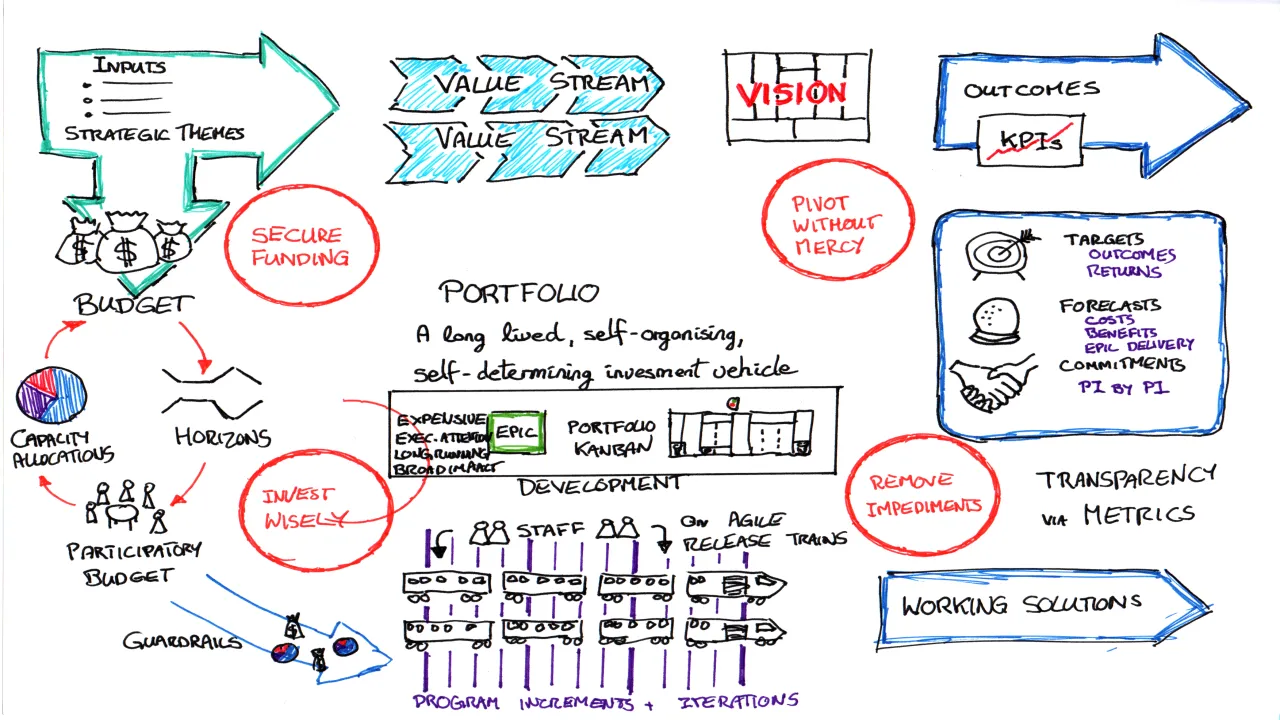 INPUTS
STRATEGIC THEMES
$ $ $
BUDGET
SECURE
FUNDING
CAPACITY
ALLOCATIONS
HORIZONS
PARTICIPATORY
BUDGET
INVEST
WISELY
GUARDRAILS
$
VALUE STREAM
VALUE STREAM
VISION
PIVOT
WITHOUT
MERCY
PORTFOLIO
A long lived, self-organising,
self-determining invesment vehicle
EXPENSIVE
EXEC. ATTENTION
LONG RUNNING
BROAD IMPACT
EPIC
PORTFOLIO
KANBAN
DEVELOPMENT
STAFF
ON AGILE
RELEASE TRAINS
PROGRAM INCREMENTS + ITERATIONS
OUTCOMES
KPIs
TARGETS
OUTCOMES
RETURNS
FORECASTS
COSTS
BENEFITS
EPIC DELIVERY
COMMITMENTS
PI BY PI
REMOVE
IMPEDIMENTS
TRANSPARENCY
VIA METRICS
WORKING SOLUTIONS